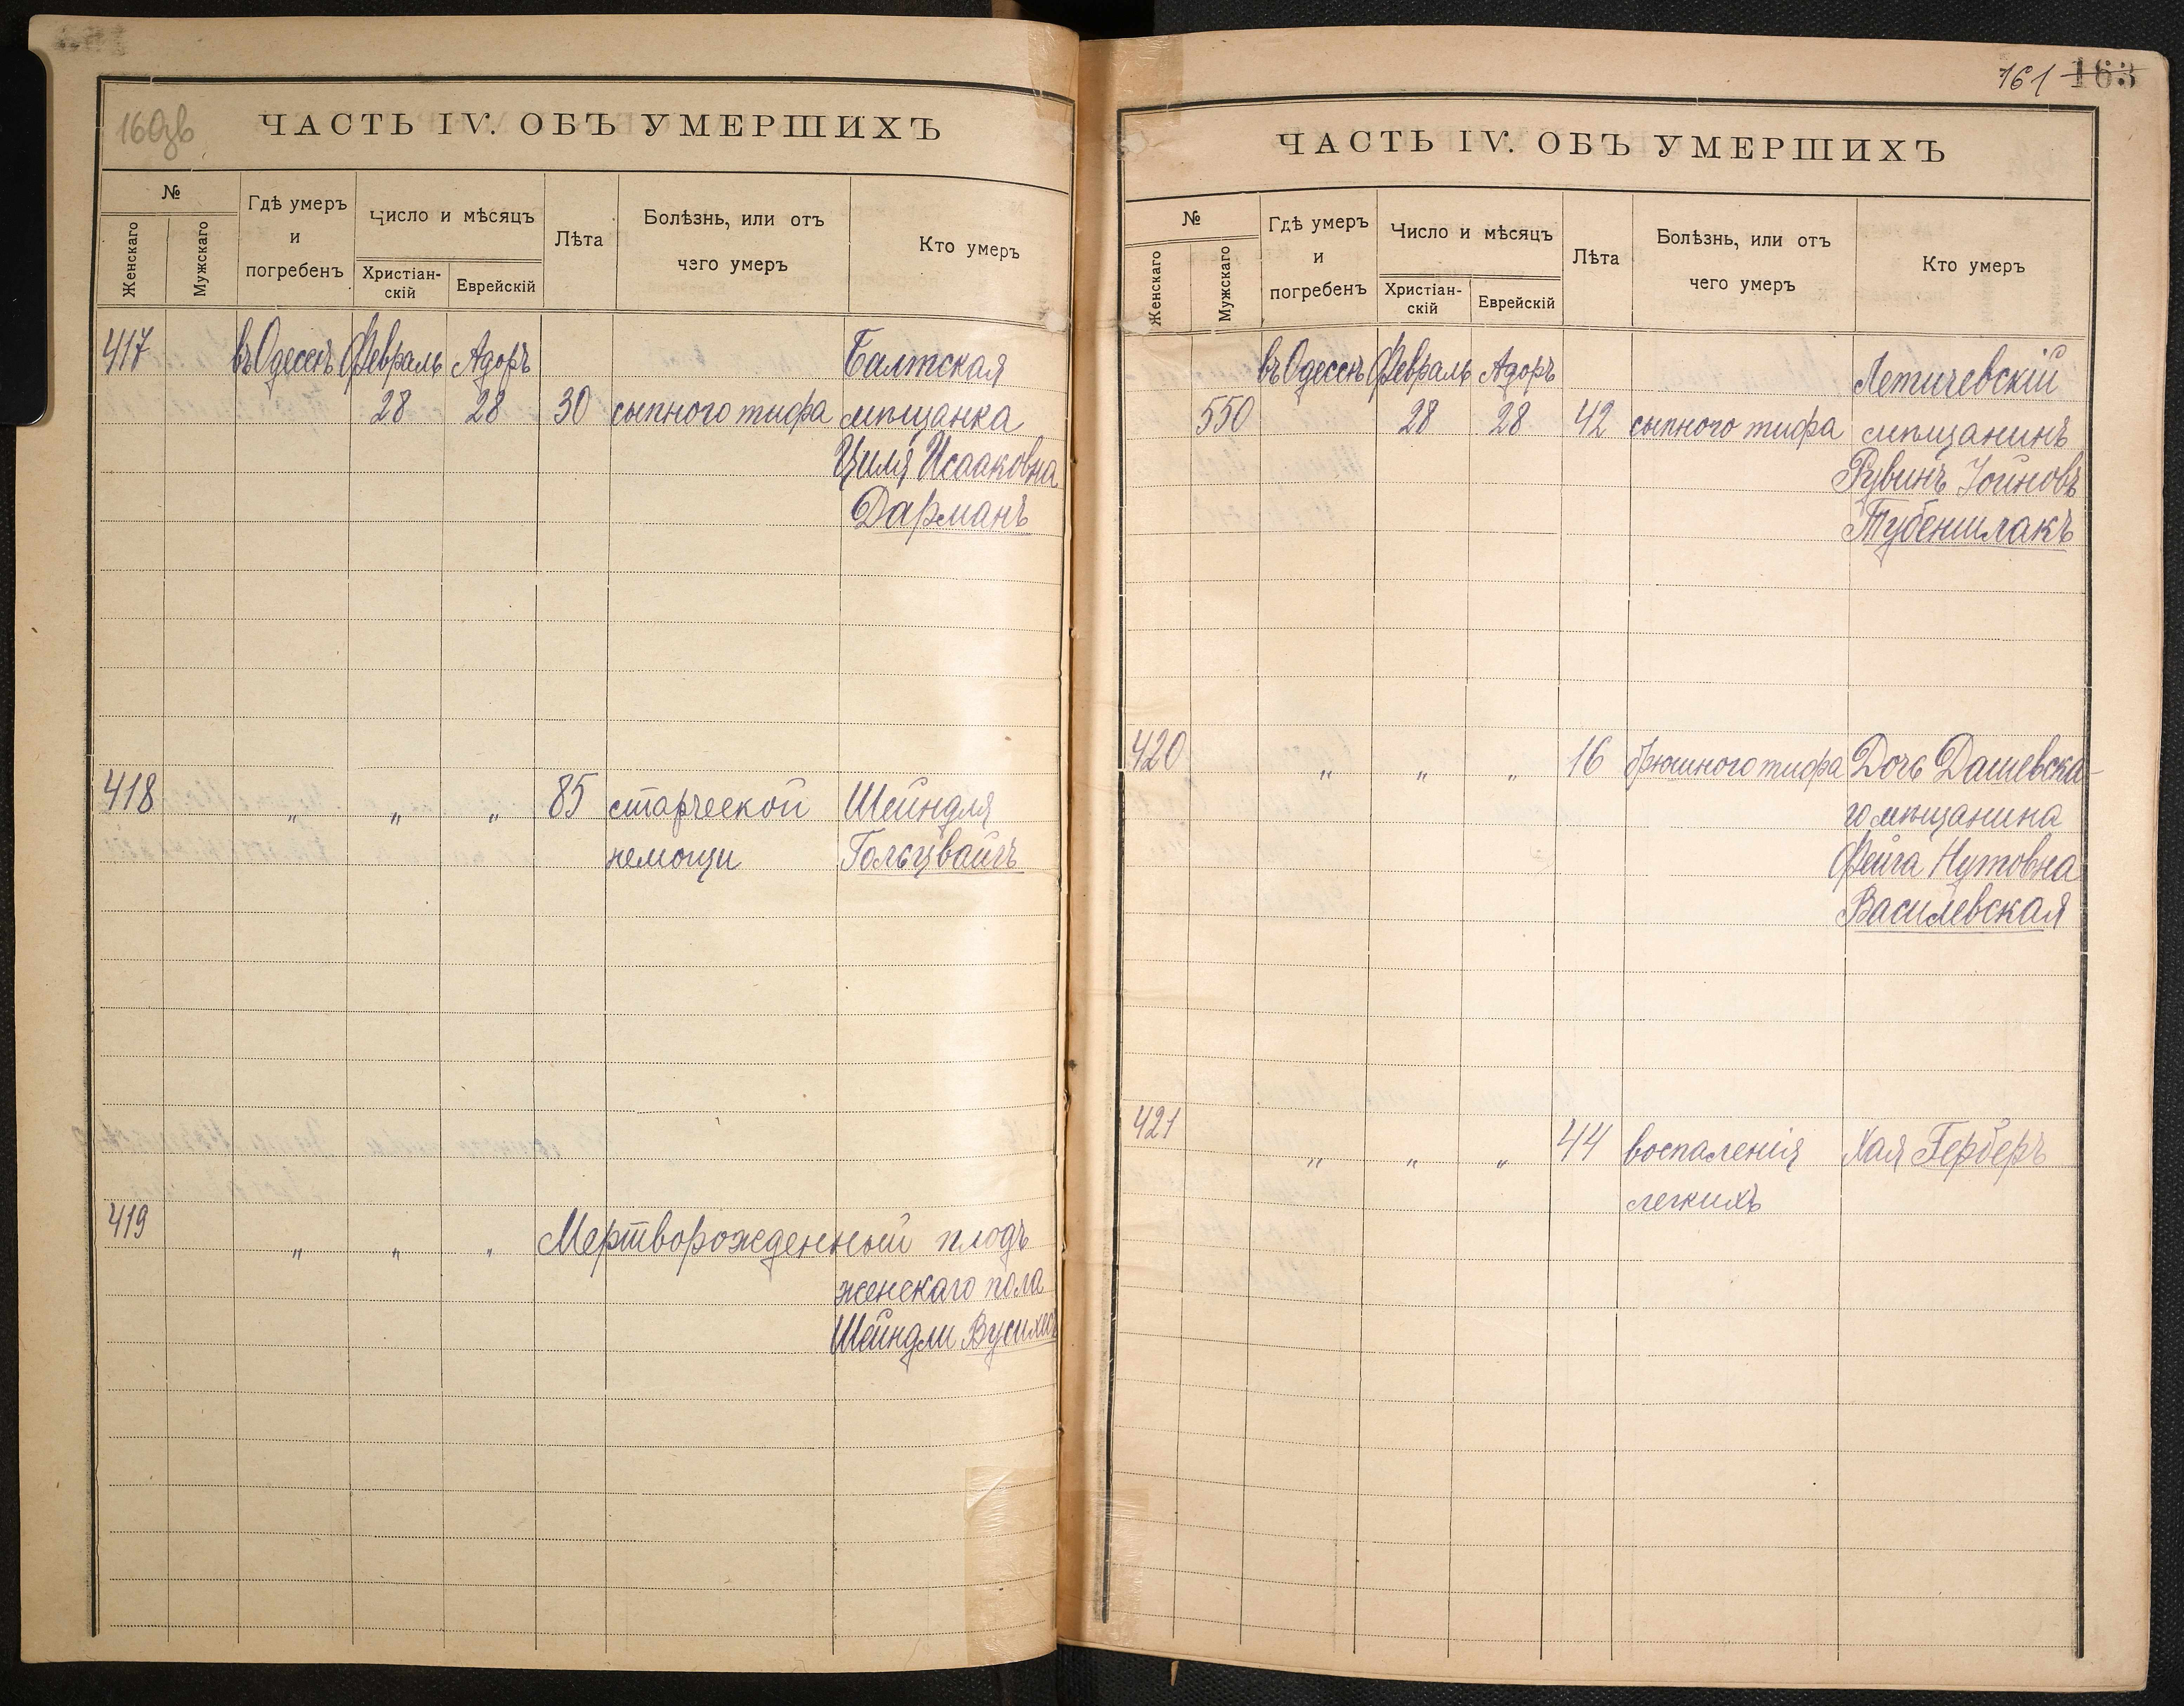 160зв
ЧАСТЬ IV. ОБЪ УМЕРШИХЪ
№
Женскаго
Мужскаго
Гдѣ умеръ
и
погребенъ
Число и мѣсяцъ
Христіан-
скій
Еврейскій
Лѣта
Болѣзнь, или отъ
чего умеръ
Кто умеръ
417 въ Одессѣ Февраль Адоръ Балтская
28 28 30 сыпного тифа мѣщанка
Циля Исааковна
Дарманъ
418 " " " 85 старческой Шейндля
немощи Гольцвайгъ
419
" " " Мертворожденный плодъ
женскаго пола
Шейндли Вусихесъ
161 163
ЧАСТЬ IV. ОБЪ УМЕРШИХЪ
№
Женскаго
Мужскаго
Гдѣ умеръ
и
погребенъ
Число и мѣсяцъ
Христіан-
скій
Еврейскій
Лѣта
Болѣзнь, или отъ
чего умеръ
Кто умеръ
въ Одессѣ Февраль Адоръ Летичевскій
550 28 28 42 сыпного тифа мѣщанинъ
Рувинъ Іойновъ
Тубеншлакъ
420 " " " 16 брюшного тифа Дочь Дашевска-
го мѣщанина
Фейга Нутовна
Василевская
421 " " " 44 воспаленія Хая Герберъ
легкихъ